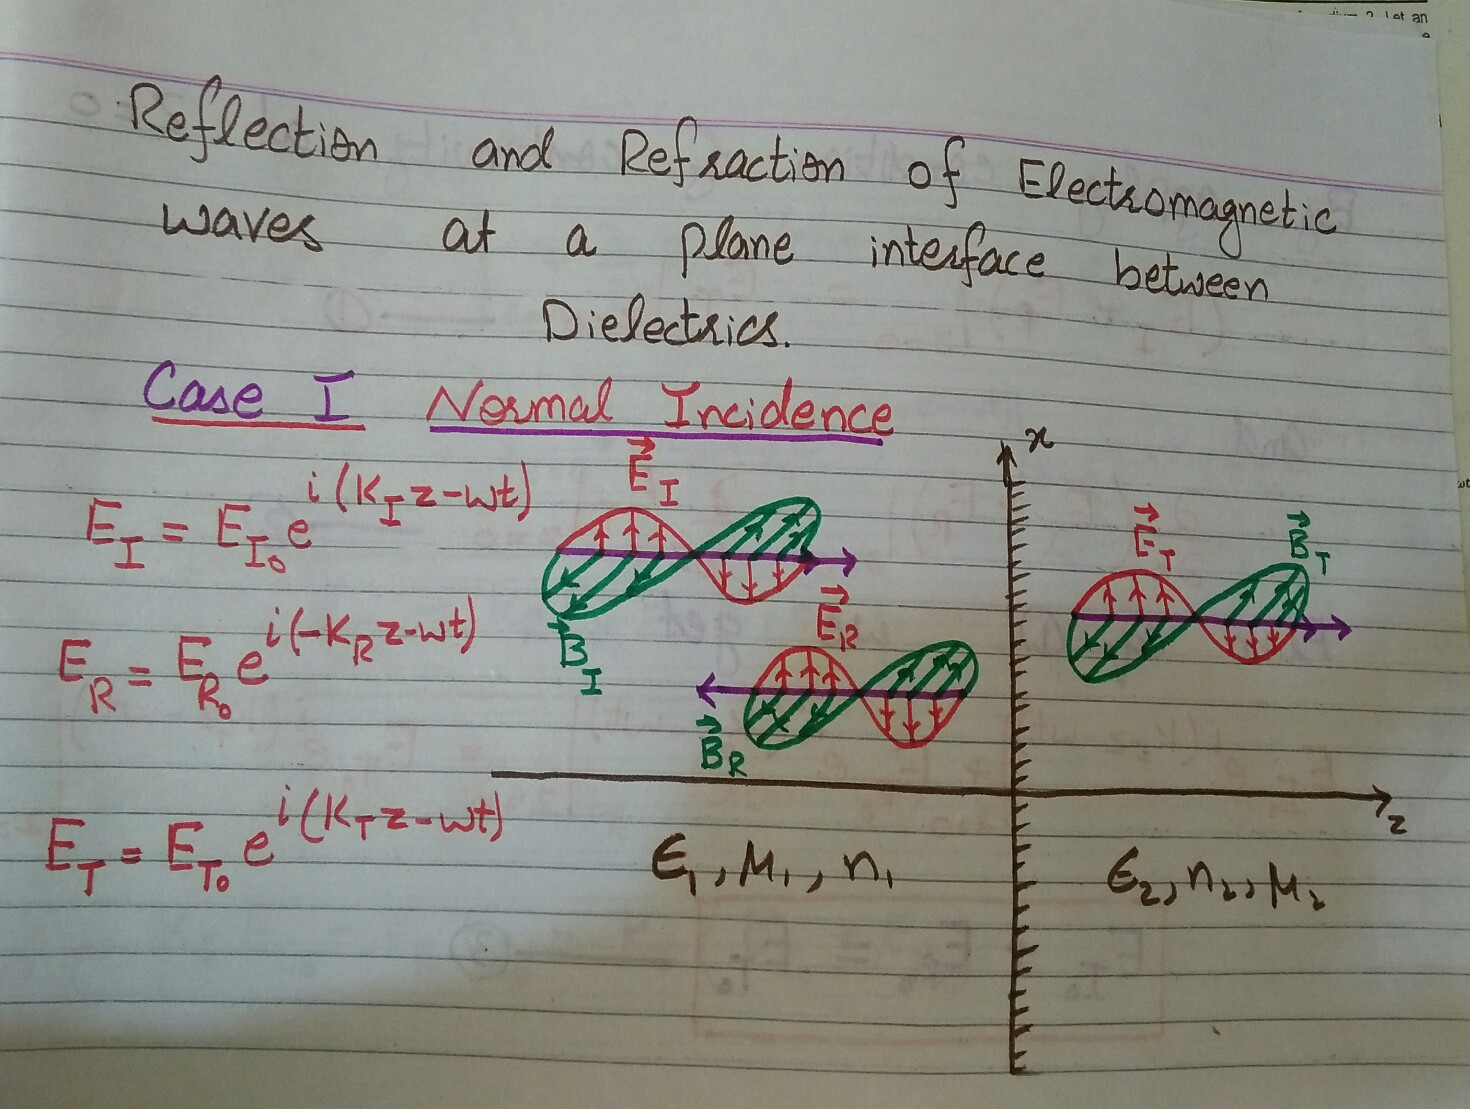 Reflection and Refraction of Electromagnetic
waves at a plane interface between
Dielectrics.
Case I Normal Incidence
E_I = E_I₀ e^i(K_I z-wt)
E_R = E_R₀ e^i(-K_R z-wt)
E_T = E_T₀ e^i(K_T z-wt)
E⃗_I
B⃗_I
E⃗_R
B⃗_R
x
E⃗_T
B⃗_T
z
ϵ₁, μ₁, n₁
ϵ₂, n₂, μ₂
Let an